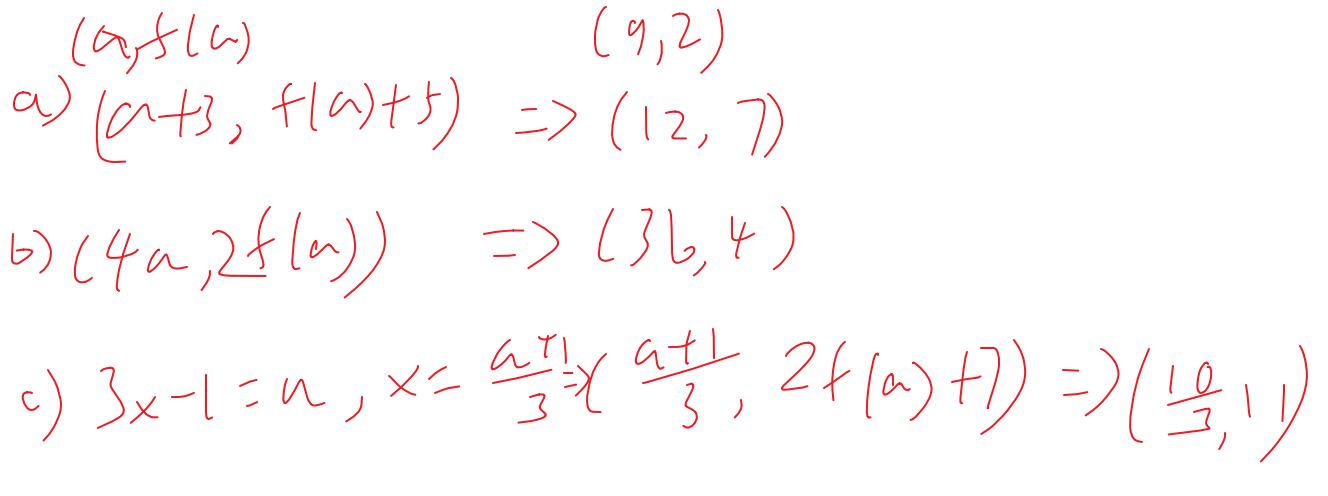 (a, f(a) (9, 2)
a) (a+3, f(a)+5) => (12, 7)
b) (4a, 2f(a)) => (36, 4)
c) 3x-1=a, x= a+1/3 => ( a+1/3, 2f(a)+7) => (10/3, 11)